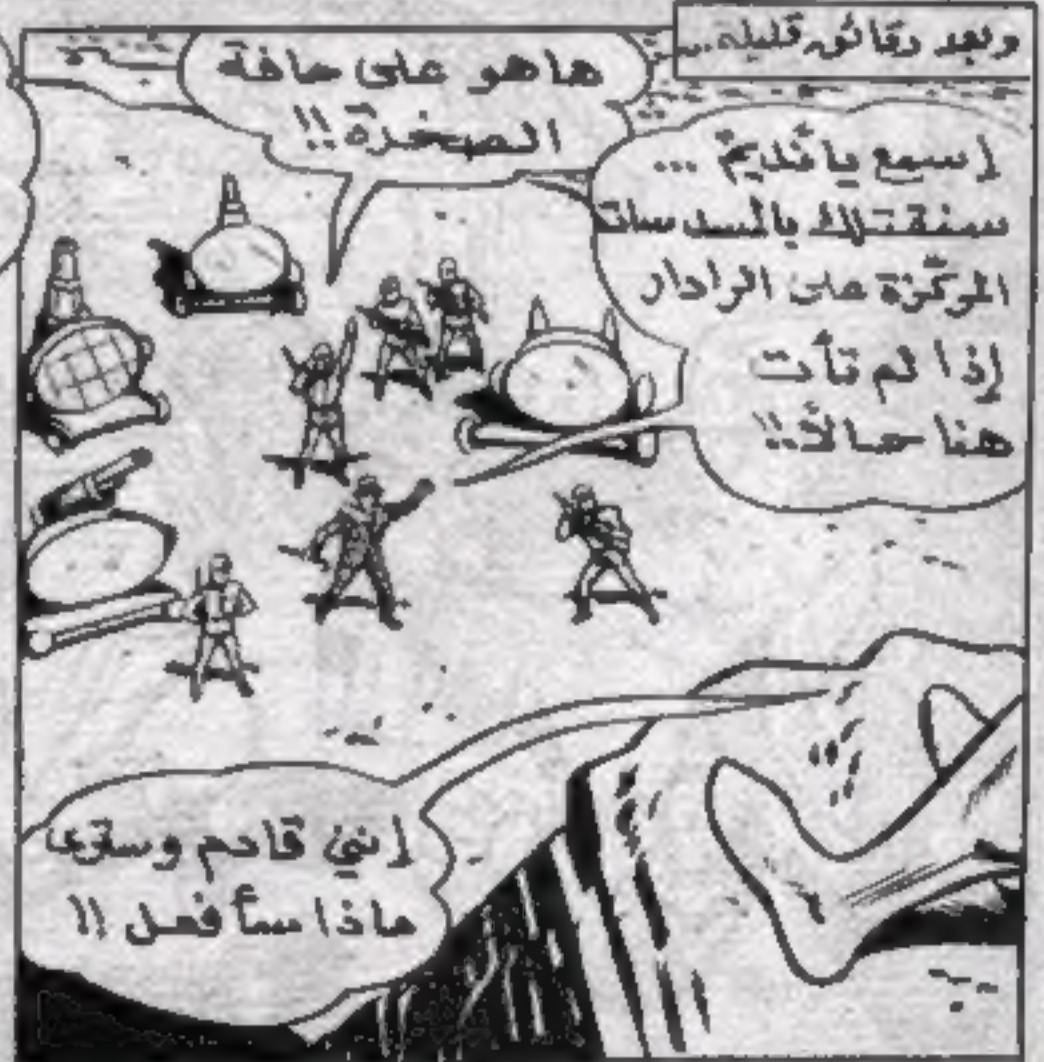 وبعد دقائق قليلة..
هاهو على حافة
الصخرة!!
إسمع يا قديم ...
سنقتلك بالمسدسات
المركّزة على الرادار
إذا لم تأت
هنا حالاً!!
إنني قادم وسترى
ماذا سأفعل !!